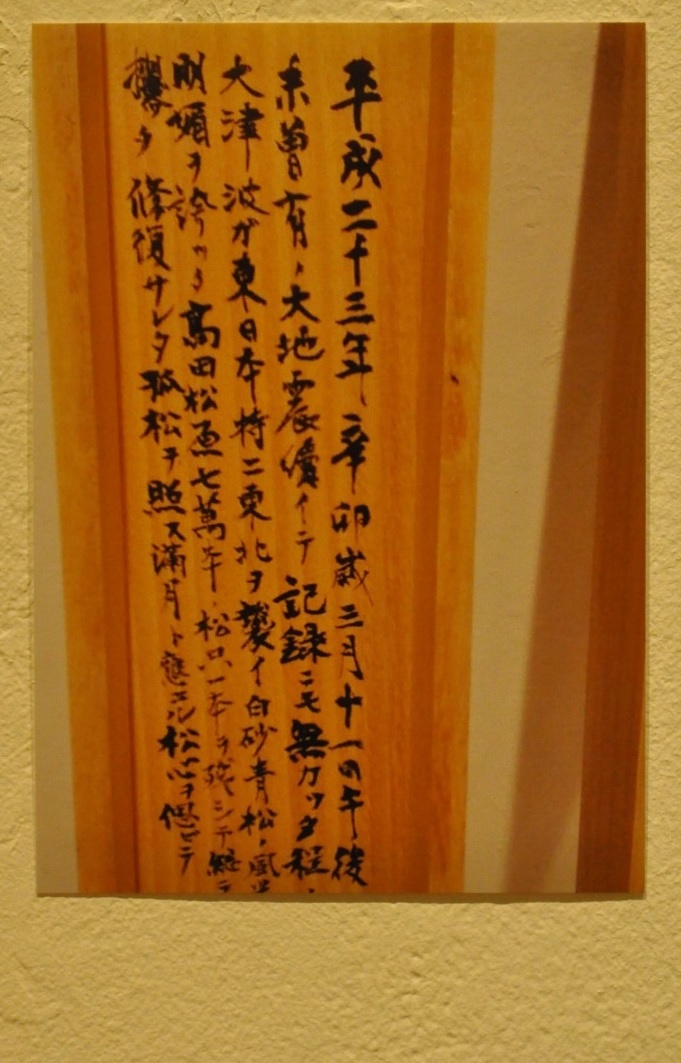 平成二十三年辛卯歳三月十一日午後
未曽有ノ大地震續イテ記録ニモ無カツタ程ノ
大津波ガ東日本特ニ東北ヲ襲イ白砂青松ノ風光
明媚ヲ誇ツタ高田松原七萬本ノ松只一本ヲ残シテ總テ
ヲ修復サレタ孤松ヲ照ス満月ト應エル松心ヲ偲ビテ